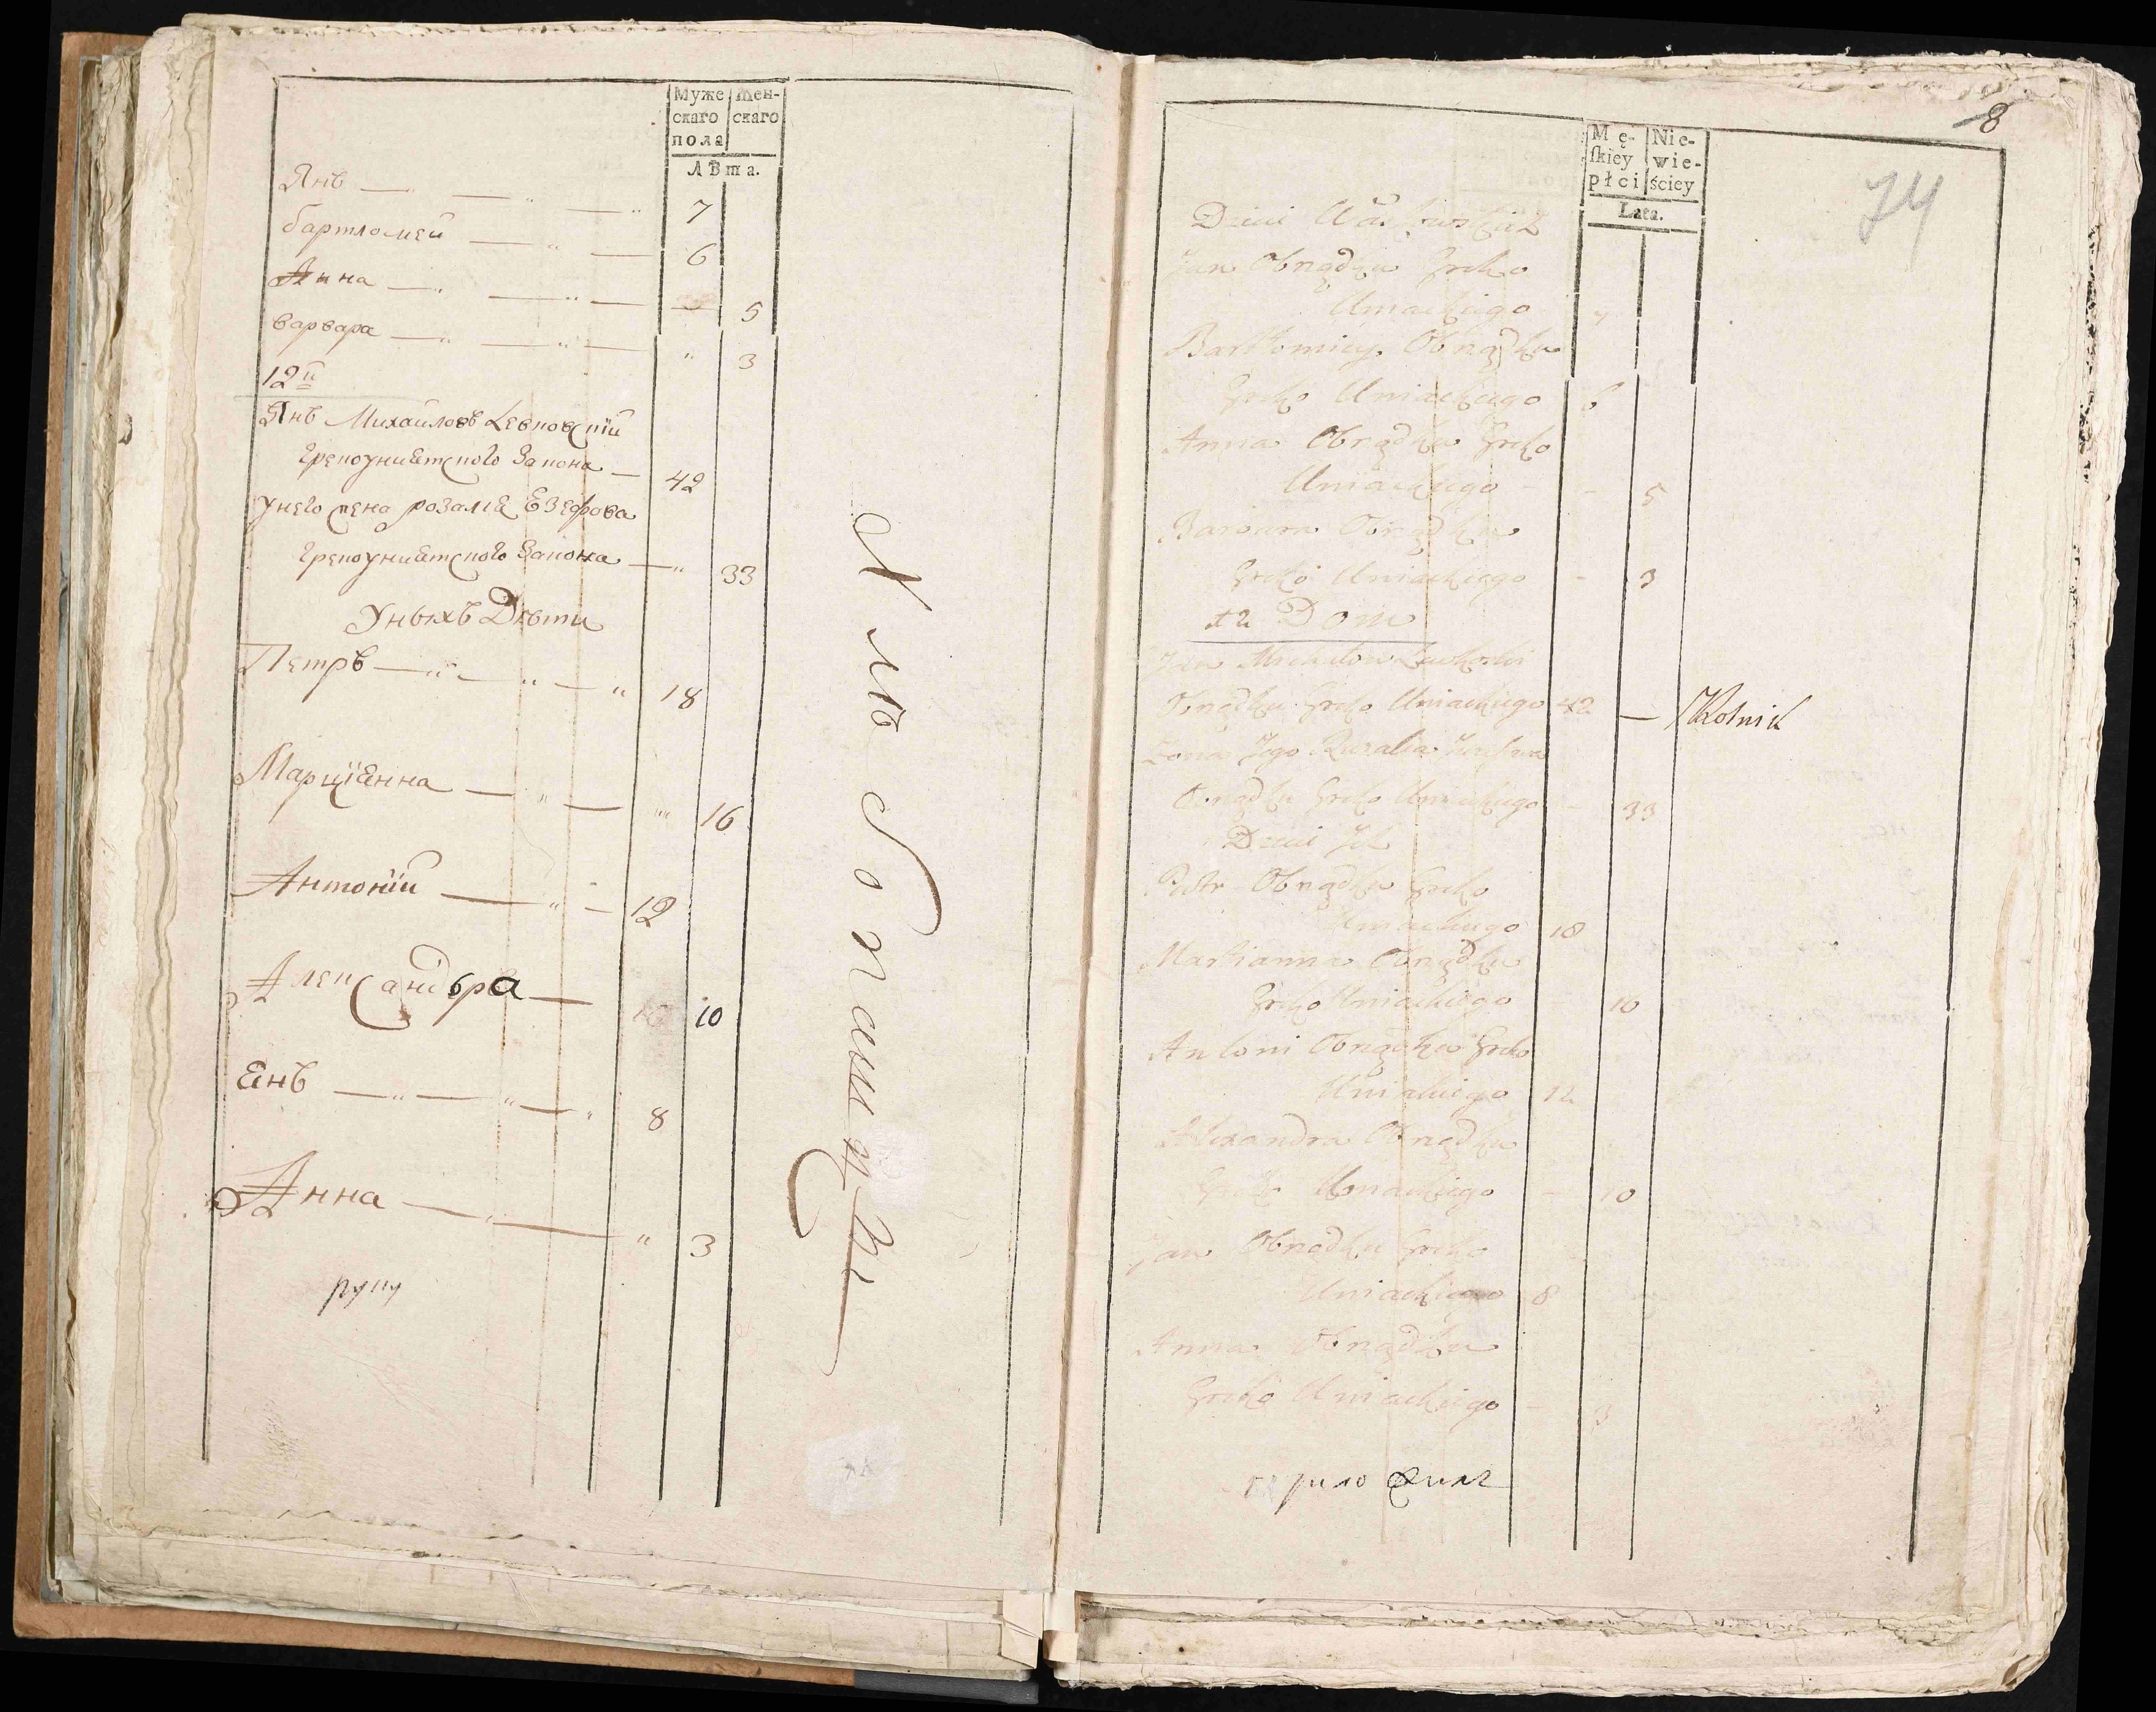 Муже Жен-
скаго скаго
пола
Лѣта.
Янъ — " — " 7
бартломей — " — 6
Анна — " — " — 5
варвара — " — " — " 3
12й
Янъ Михайловъ Левковскiй
грекоунiатского Закона — 42
унего жена розалiя Езефова
грекоунiатского Закона — " 33
Уныхъ Дѣти
Петръ — " — " — " 18
Марцiянна — " — " 16
Антонiй — " — 12
Александъра — 10
Янъ — " — " — " 8
Анна — " — " 3
руку
8
74
Mę- Nie-
skiey wie-
płci ściey
Lata.
Dzieci
Jan Obrządku Greko
Uniackiego 7
Bartłomiey Obrządku
Greko Uniackiego 6
Anna Obrządku Greko
Uniackiego - - 5
Barbara Obrządku
Greko Uniackiego - 3
12 Dom
Jan Michałow Lewkoski
Obrządku Greko Uniackiego 42 — Rolnik
Żona Jego Rozalia
Obrządku Greko Uniackiego - 33
Dzieci Ich
Piotr Obrządku Greko
Uniackiego 18
Marcianna Obrządku
Greko Uniackiego - 16
Antoni Obrządku Greko
Uniackiego 12
Alexandra Obrządku
Greko Uniackiego - 10
Jan Obrządku Greko
Uniackiego 8
Anna Obrządku
Greko Uniackiego - 3